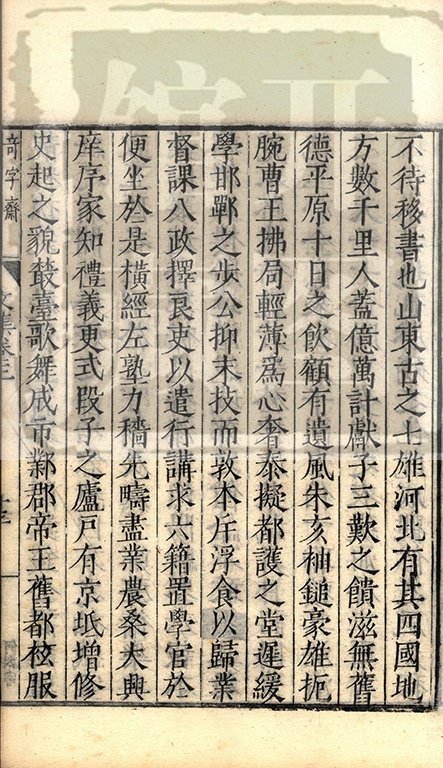 不待移書也山東古之七雄河北有其四國地
方數千里人蓋億萬計獻子三歎之饋滋無舊
德平原十日之飲顧有遺風朱亥柚鎚豪雄扼
腕曹王拂局輕薄爲心奢泰擬都護之堂遲緩
學邯鄲之步公抑末技而敦本斥浮食以歸業
督課八政擇良吏以遣行講求六籍置學官於
便坐於是橫經左塾力穡先疇盡業農桑大興
庠序家知禮義更式段子之廬戶有京坻增修
史起之貌叢臺歌舞成市鄴郡帝王舊都袨服
奇字齋
文集卷三